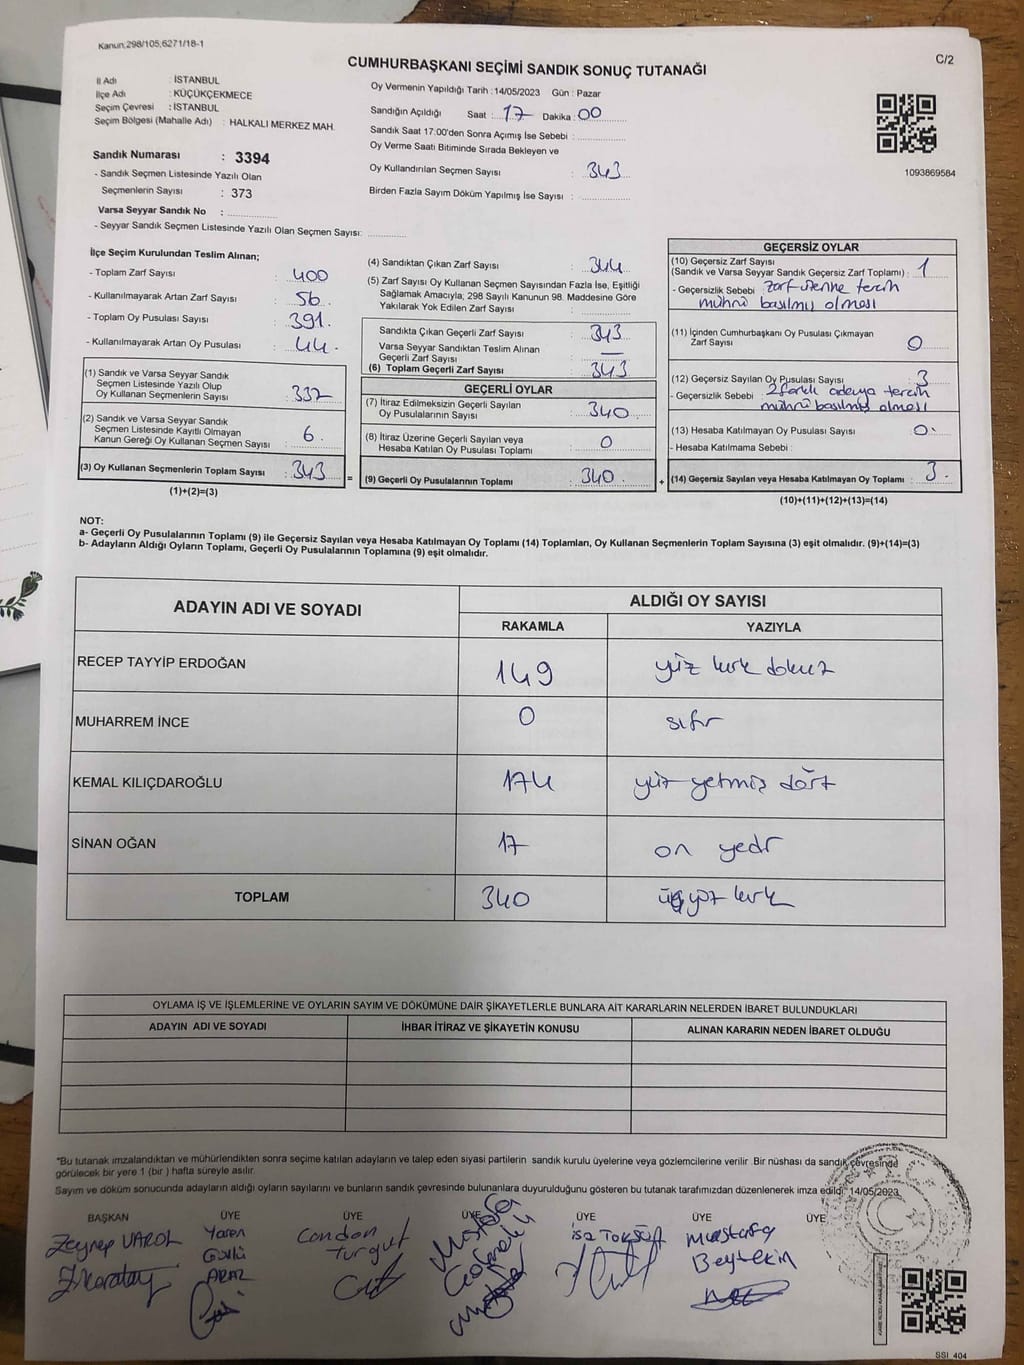 Kanun,298/105,6271/18-1
C/2
CUMHURBAŞKANI SEÇİMİ SANDIK SONUÇ TUTANAĞI
İl Adı : İSTANBUL
İlçe Adı : KÜÇÜKÇEKMECE
Seçim Çevresi : İSTANBUL
Seçim Bölgesi (Mahalle Adı) : HALKALI MERKEZ MAH.
Sandık Numarası : 3394
- Sandık Seçmen Listesinde Yazılı Olan
Seçmenlerin Sayısı : 373
Varsa Seyyar Sandık No :
- Seyyar Sandık Seçmen Listesinde Yazılı Olan Seçmen Sayısı:
Oy Vermenin Yapıldığı Tarih : 14/05/2023 Gün : Pazar
Sandığın Açıldığı Saat : 17 Dakika : 00
Sandık Saat 17.00'den Sonra Açımış İse Sebebi :
Oy Verme Saati Bitiminde Sırada Bekleyen ve
Oy Kullandırılan Seçmen Sayısı : 343
Birden Fazla Sayım Döküm Yapılmış İse Sayısı :
1093869584
İlçe Seçim Kurulundan Teslim Alınan;
- Toplam Zarf Sayısı : 400
- Kullanılmayarak Artan Zarf Sayısı : 56
- Toplam Oy Pusulası Sayısı : 391.
- Kullanılmayarak Artan Oy Pusulası : 44.
(1) Sandık ve Varsa Seyyar Sandık
Seçmen Listesinde Yazılı Olup
Oy Kullanan Seçmenlerin Sayısı : 337
(2) Sandık ve Varsa Seyyar Sandık
Seçmen Listesinde Kayıtlı Olmayan
Kanun Gereği Oy Kullanan Seçmen Sayısı : 6.
(3) Oy Kullanan Seçmenlerin Toplam Sayısı : 343
(1)+(2)=(3)
=
(4) Sandıktan Çıkan Zarf Sayısı : 344
(5) Zarf Sayısı Oy Kullanan Seçmen Sayısından Fazla İse, Eşitliği
Sağlamak Amacıyla, 298 Sayılı Kanunun 98. Maddesine Göre
Yakılarak Yok Edilen Zarf Sayısı :
Sandıkta Çıkan Geçerli Zarf Sayısı : 343
Varsa Seyyar Sandıktan Teslim Alınan
Geçerli Zarf Sayısı : —
(6) Toplam Geçerli Zarf Sayısı : 343
GEÇERLİ OYLAR
(7) İtiraz Edilmeksizin Geçerli Sayılan
Oy Pusulalarının Sayısı : 340
(8) İtiraz Üzerine Geçerli Sayılan veya
Hesaba Katılan Oy Pusulası Toplamı : 0
(9) Geçerli Oy Pusulalarının Toplamı : 340
+
GEÇERSİZ OYLAR
(10) Geçersiz Zarf Sayısı
(Sandık ve Varsa Seyyar Sandık Geçersiz Zarf Toplamı) : 1
- Geçersizlik Sebebi : zarf üzerine tercih
mührü basılmış olması
(11) İçinden Cumhurbaşkanı Oy Pusulası Çıkmayan
Zarf Sayısı : 0
(12) Geçersiz Sayılan Oy Pusulası Sayısı : 3
- Geçersizlik Sebebi : 2 farklı adaya tercih
mührü basılmış olması
(13) Hesaba Katılmayan Oy Pusulası Sayısı : 0
- Hesaba Katılmama Sebebi :
(14) Geçersiz Sayılan veya Hesaba Katılmayan Oy Toplamı : 3.
(10)+(11)+(12)+(13)=(14)
NOT:
a- Geçerli Oy Pusulalarının Toplamı (9) ile Geçersiz Sayılan veya Hesaba Katılmayan Oy Toplamı (14) Toplamları, Oy Kullanan Seçmenlerin Toplam Sayısına (3) eşit olmalıdır. (9)+(14)=(3)
b- Adayların Aldığı Oyların Toplamı, Geçerli Oy Pusulalarının Toplamına (9) eşit olmalıdır.
ADAYIN ADI VE SOYADI
ALDIĞI OY SAYISI
RAKAMLA YAZIYLA
RECEP TAYYİP ERDOĞAN 149 yüz kırk dokuz
MUHARREM İNCE 0 sıfır
KEMAL KILIÇDAROĞLU 174 yüz yetmiş dört
SİNAN OĞAN 17 on yedi
TOPLAM 340 üçyüz kırk
OYLAMA İŞ VE İŞLEMLERİNE VE OYLARIN SAYIM VE DÖKÜMÜNE DAİR ŞİKAYETLERLE BUNLARA AİT KARARLARIN NELERDEN İBARET BULUNDUKLARI
ADAYIN ADI VE SOYADI İHBAR İTİRAZ VE ŞİKAYETİN KONUSU ALINAN KARARIN NEDEN İBARET OLDUĞU
*Bu tutanak imzalandıktan ve mühürlendikten sonra seçime katılan adayların ve talep eden siyasi partilerin sandık kurulu üyelerine veya gözlemcilerine verilir. Bir nüshası da sandık çevresinde
görülecek bir yere 1 (bir ) hafta süreyle asılır.
Sayım ve döküm sonucunda adayların aldığı oyların sayılarını ve bunların sandık çevresinde bulunanlara duyurulduğunu gösteren bu tutanak tarafımızdan düzenlenerek imza edildi. 14/05/2023
BAŞKAN ÜYE ÜYE ÜYE ÜYE ÜYE ÜYE
Zeynep VAROL Yaren Candan Mustafa isa TOKSÖZ Mustafa
Güllü Turgut Beytekin
ARAZ
SSI 404